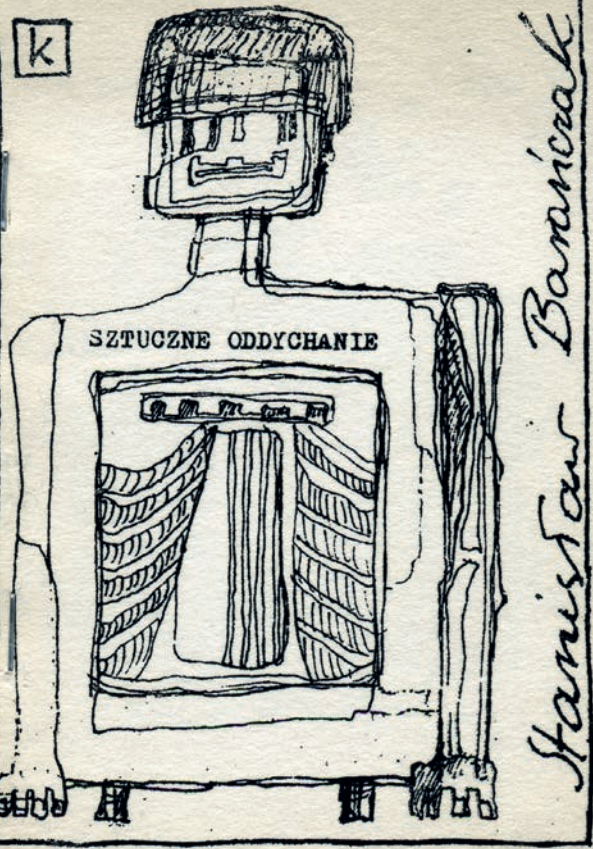 k
SZTUCZNE ODDYCHANIE
Stanisław Barańczak